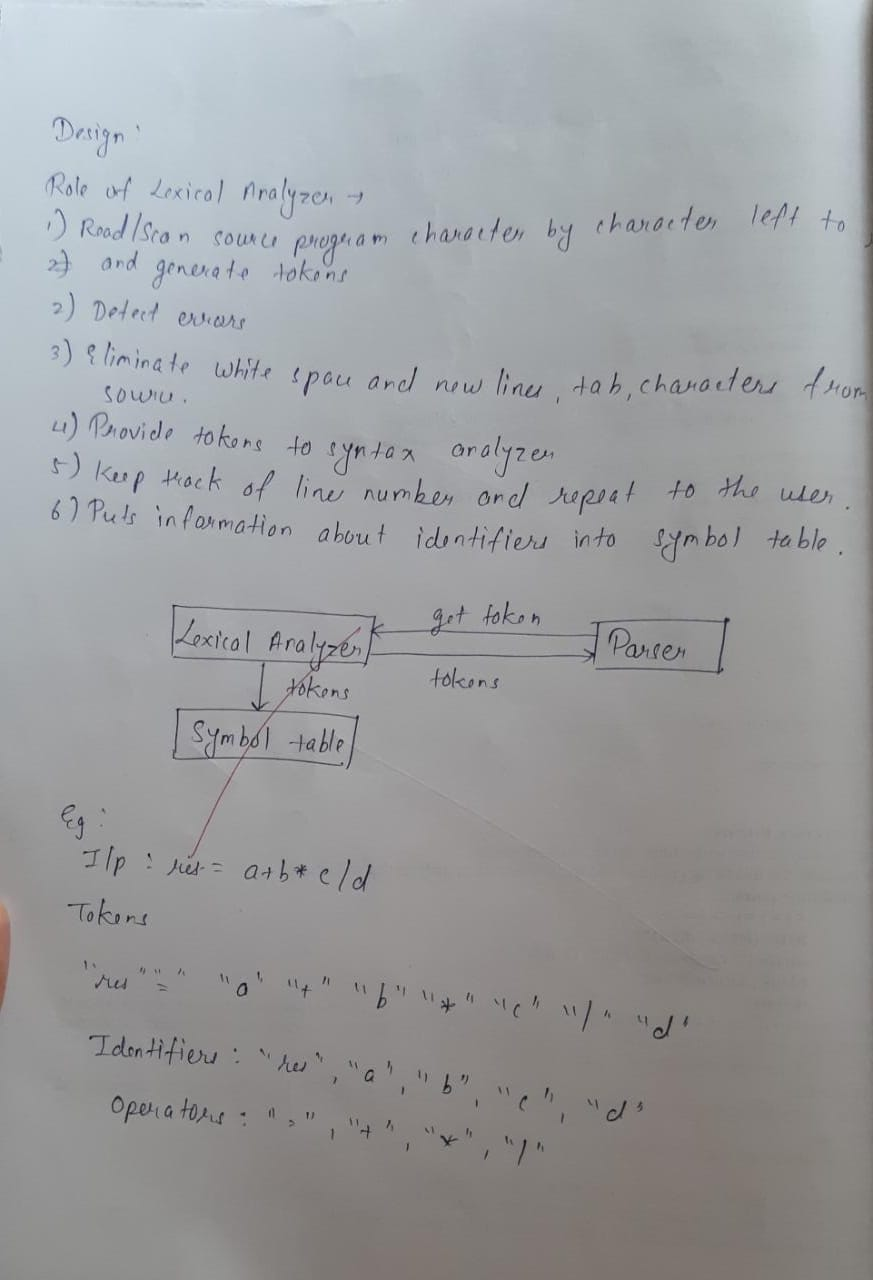 Design:
Role of Lexical Analyzer →
1) Read/Scan source program character by character left to
2) and generate tokens
2) Detect errors
3) Eliminate white space and new lines, tab, characters from
source.
4) Provide tokens to syntax analyzer
5) Keep track of line number and repeat to the user.
6) Puts information about identifiers into symbol table.
get token
Lexical Analyzer
Parser
tokens
tokens
Symbol table
Eg:
I/p : res = a+b* c/d
Tokens
"res" "=" "a" "+" "b" "*" "c" "/" "d"
Identifiers : "res", "a", "b", "c", "d"
Operators : "=", "+", "*", "/"